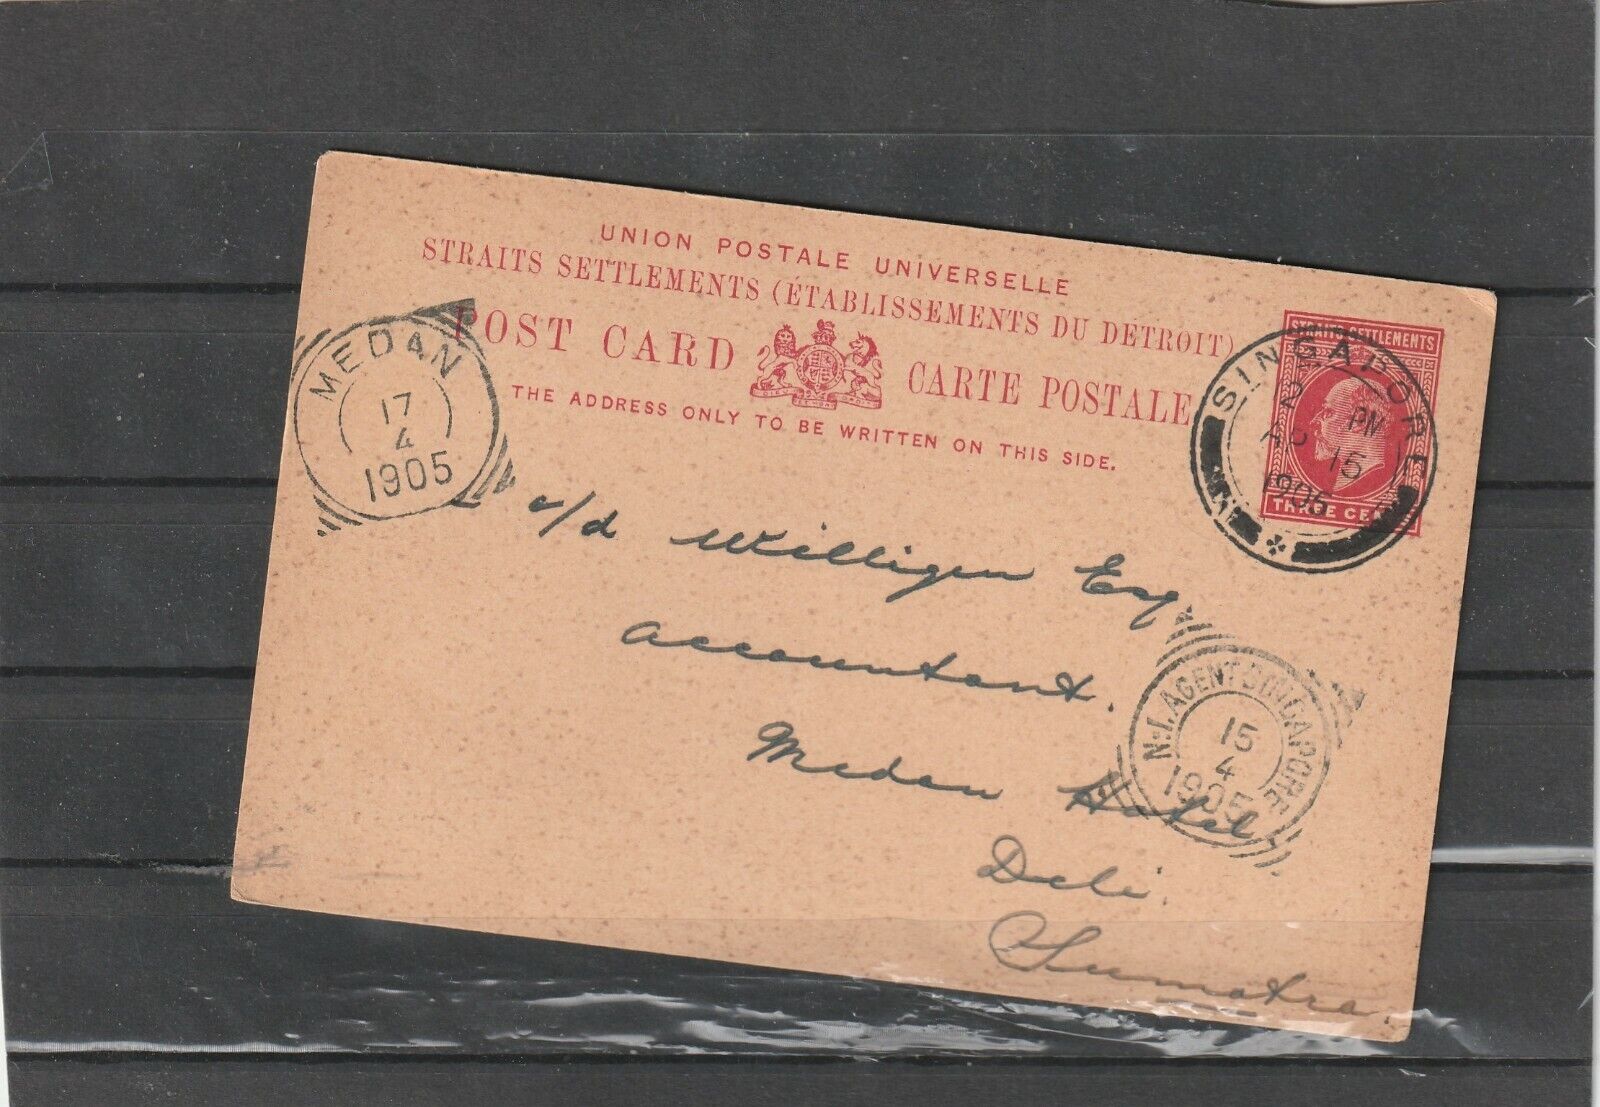 UNION POSTALE UNIVERSELLE
STRAITS SETTLEMENTS (ÉTABLISSEMENTS DU DÉTROIT)
POST CARD
CARTE POSTALE
THE ADDRESS ONLY TO BE WRITTEN ON THIS SIDE.
STRAITS SETTLEMENTS
THREE CENTS
SINGAPORE
2 PM
15
1905
MEDAN
17
4
1905
v/d Willigen Esq
Accountant.
Medan Hotel
Deli
Sumatra.
N.I. AGENT SINGAPORE
15
4
1905